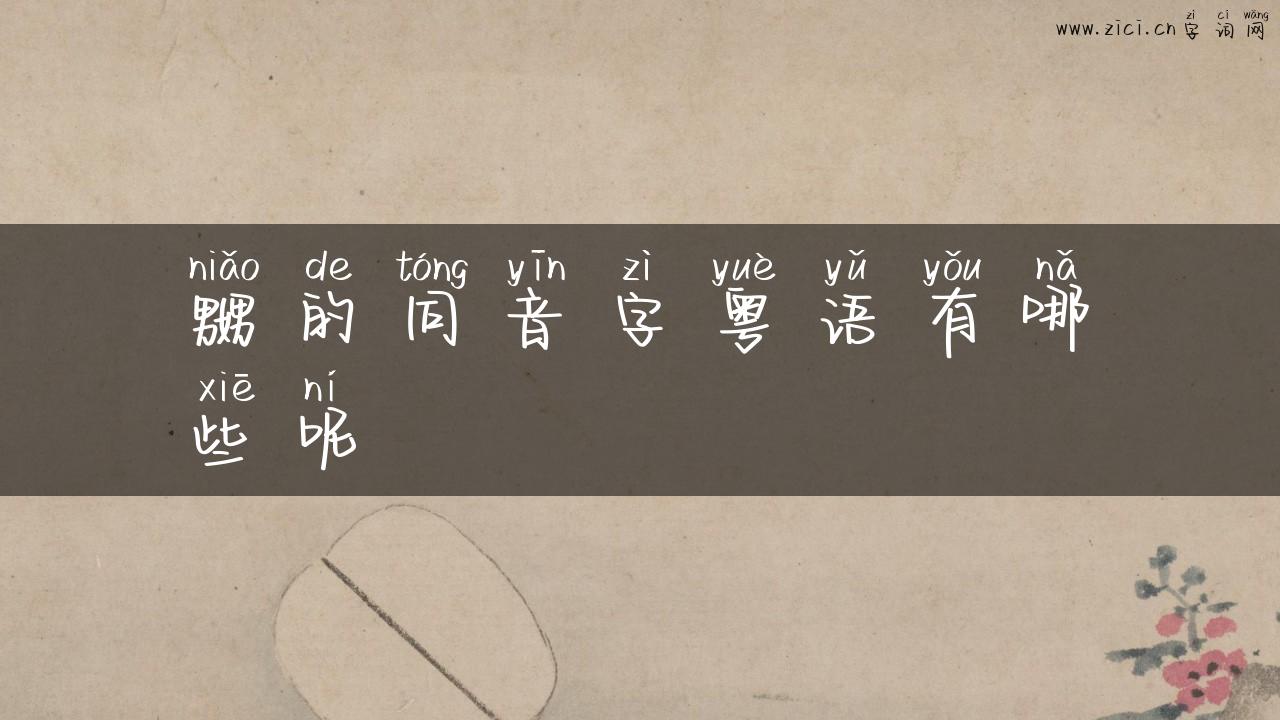 zì cí wǎng
www.zici.cn 字词网
niǎo de tóng yīn zì yuè yǔ yǒu nǎ
嬲的同音字粤语有哪
xiē ní
些呢